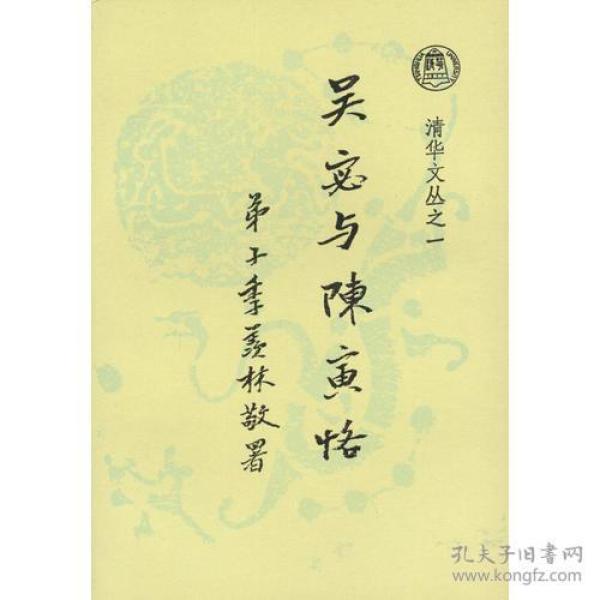 清华文丛之一
吴宓与陳寅恪
弟子季羡林敬署
孔夫子旧書网
www.kongfz.com